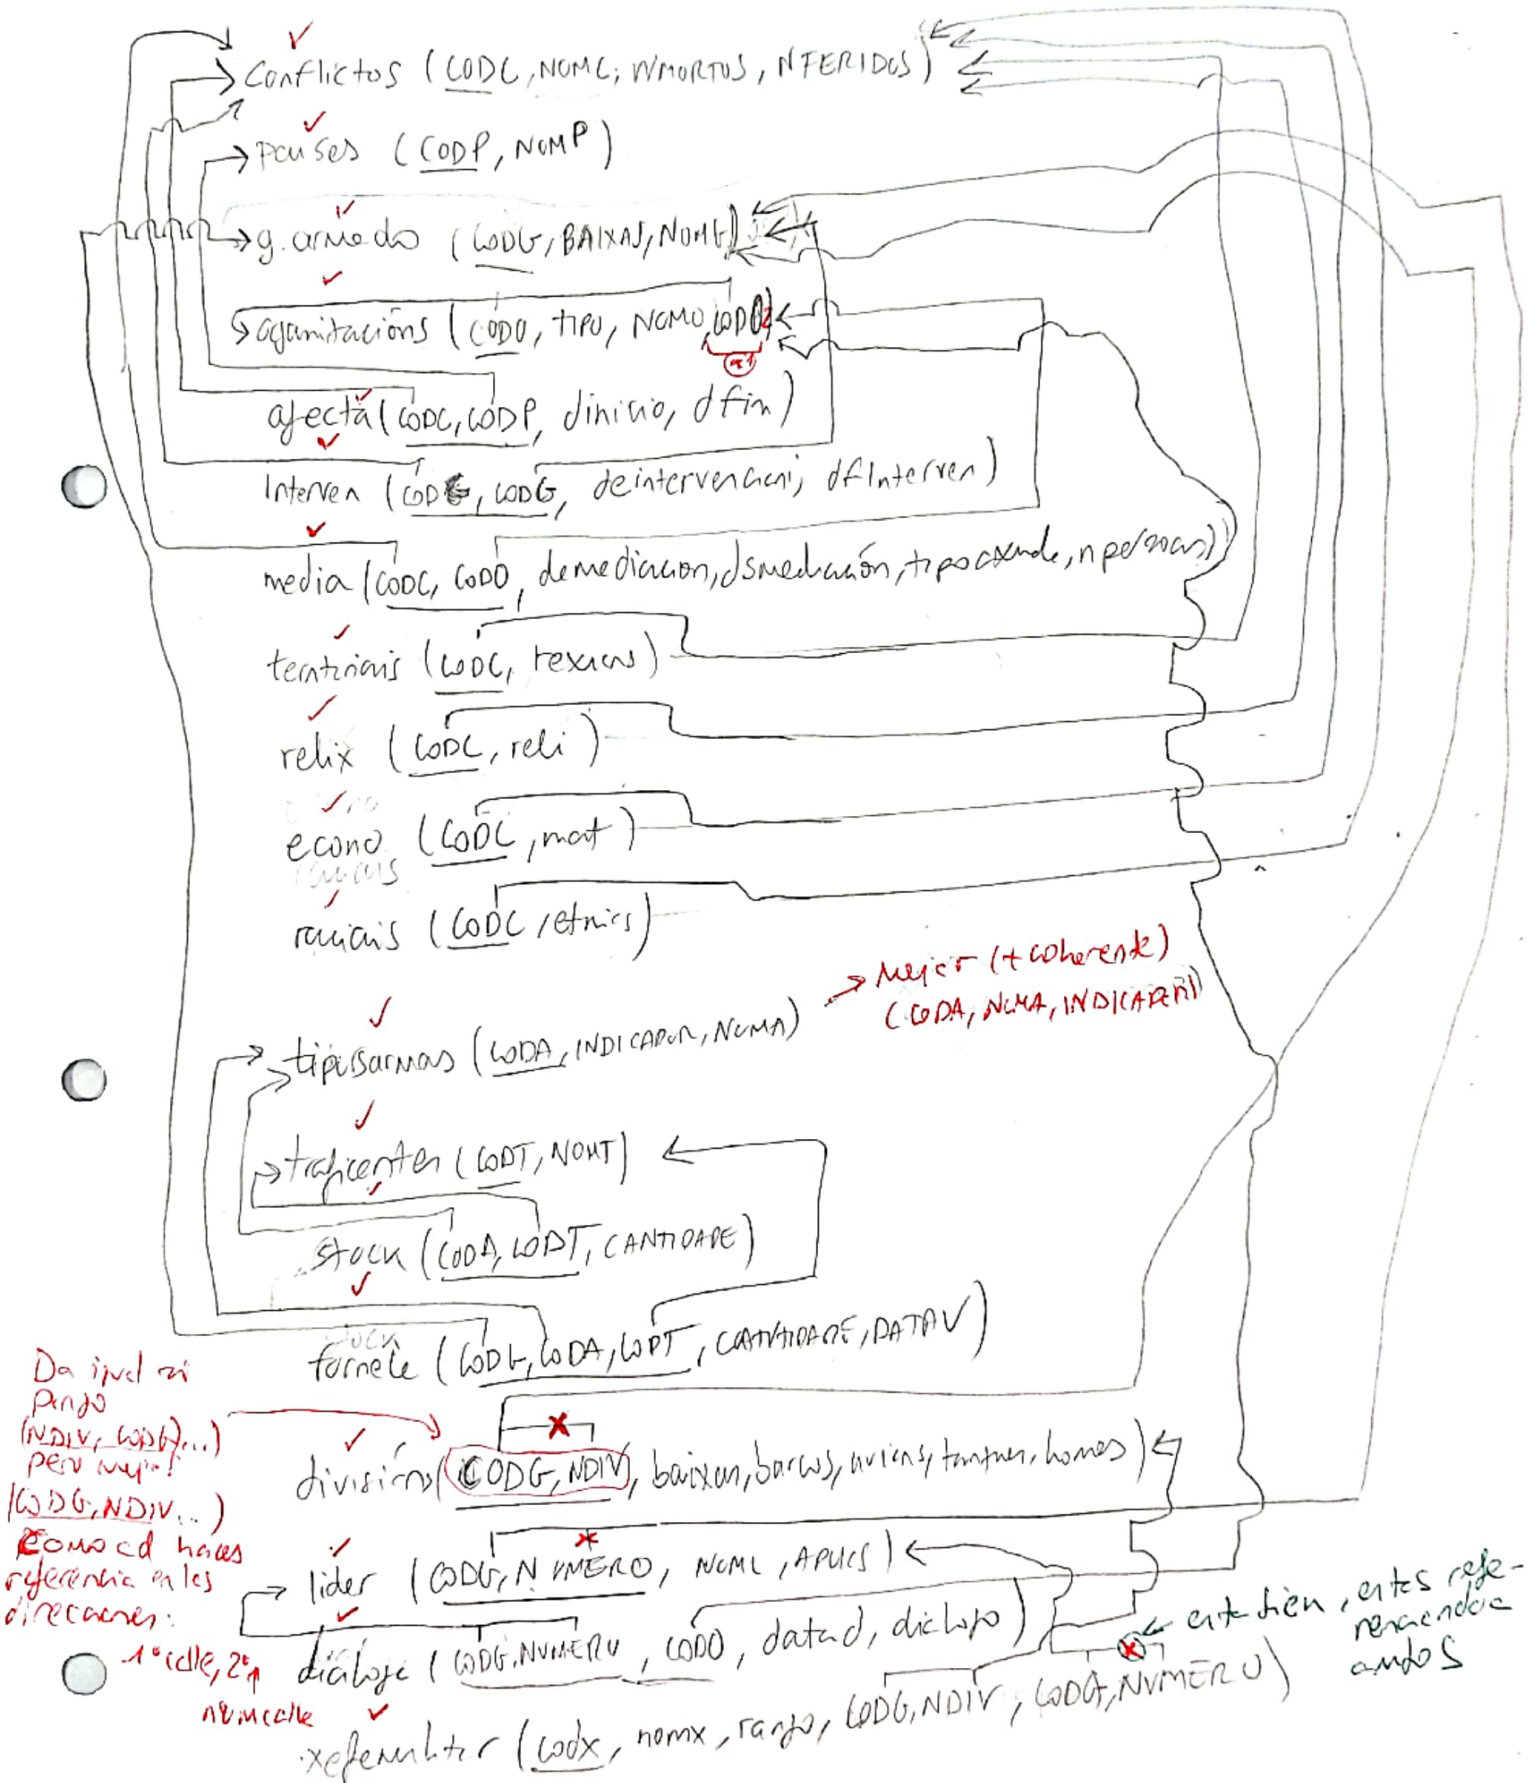 Conflictos (CODC, NOMC, NMORTOS, NFERIDOS)
paises (CODP, NOMP)
g. armado (CODG, BAIXAS, NOMG)
organitacións (CODO, TIPO, NOMO, CODO2)
afecta (CODC, CODP, dinicio, dfin)
Interven (CODC, CODG, deintervencion, dfInterven)
media (CODC, CODO, demediacion, dsmediación, tipoaxuda, npersoas)
territoriais (CODC, rexions)
relix (CODC, reli)
econo (CODC, mat)
raciais (CODC, etnics)
Mejor (+ coherente)
(CODA, NOMA, INDICADOR)
tiposarmas (CODA, INDICADOR, NOMA)
traficantes (CODT, NOMT)
stock (CODA, CODT, CANTIDADE)
fornece (CODG, CODA, CODT, CANTIDADE, DATAV)
Da igual si
pongo
(NDIV, CODG, ...)
pero mejor
(CODG, NDIV...)
Como cd haces
referencia en las
direcciones:
1º calle, 2º
númcalle
divisións (CODG, NDIV, baixas, barcos, avions, tanques, homes)
lider (CODG, NUMERO, NOML, APLICS)
dialoga (CODG, NUMERO, CODO, datad, dialogo)
está bien, estás refe-
renciando a
ambos
xefemiliter (codx, nomx, rango, CODG, NDIV, CODG, NUMERO)